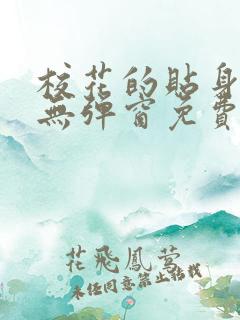 校花的貼身
無彈窗免費
花飛鳳夢
未经同意禁止转载